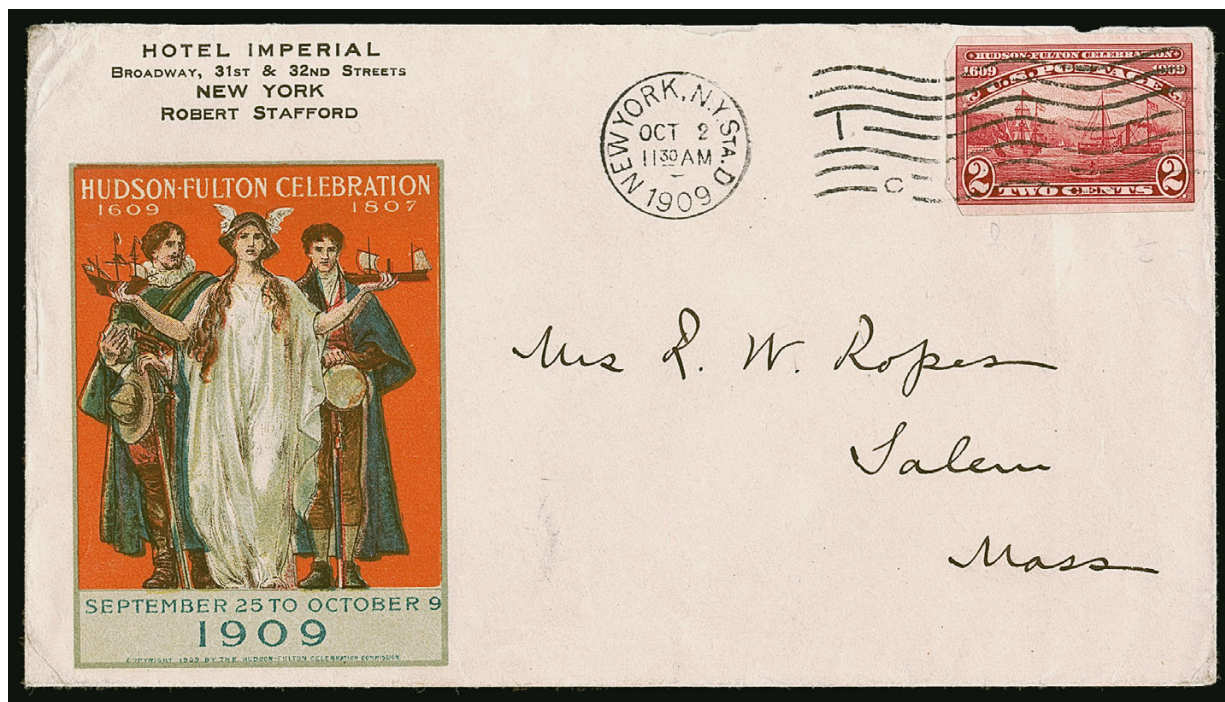 HOTEL IMPERIAL
BROADWAY, 31ST & 32ND STREETS
NEW YORK
ROBERT STAFFORD
NEW YORK, N.Y. STA. D
OCT 2
11 30 AM
1909
T.
C
HUDSON-FULTON CELEBRATION
1609 1909
U.S. POSTAGE
2 TWO CENTS 2
HUDSON-FULTON CELEBRATION
1609 1807
SEPTEMBER 25 TO OCTOBER 9
1909
COPYRIGHT 1909 BY THE HUDSON-FULTON CELEBRATION COMMISSION
Mrs R. W. Ropes
Salem
Mass